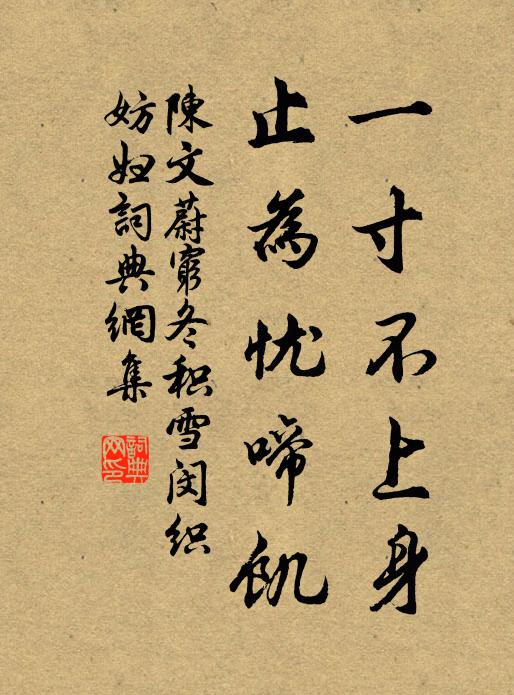 一寸不上身
止為忧啼飢
陳文蔚窮冬积雪闵织
妨妲詞典網集
詞典
网印